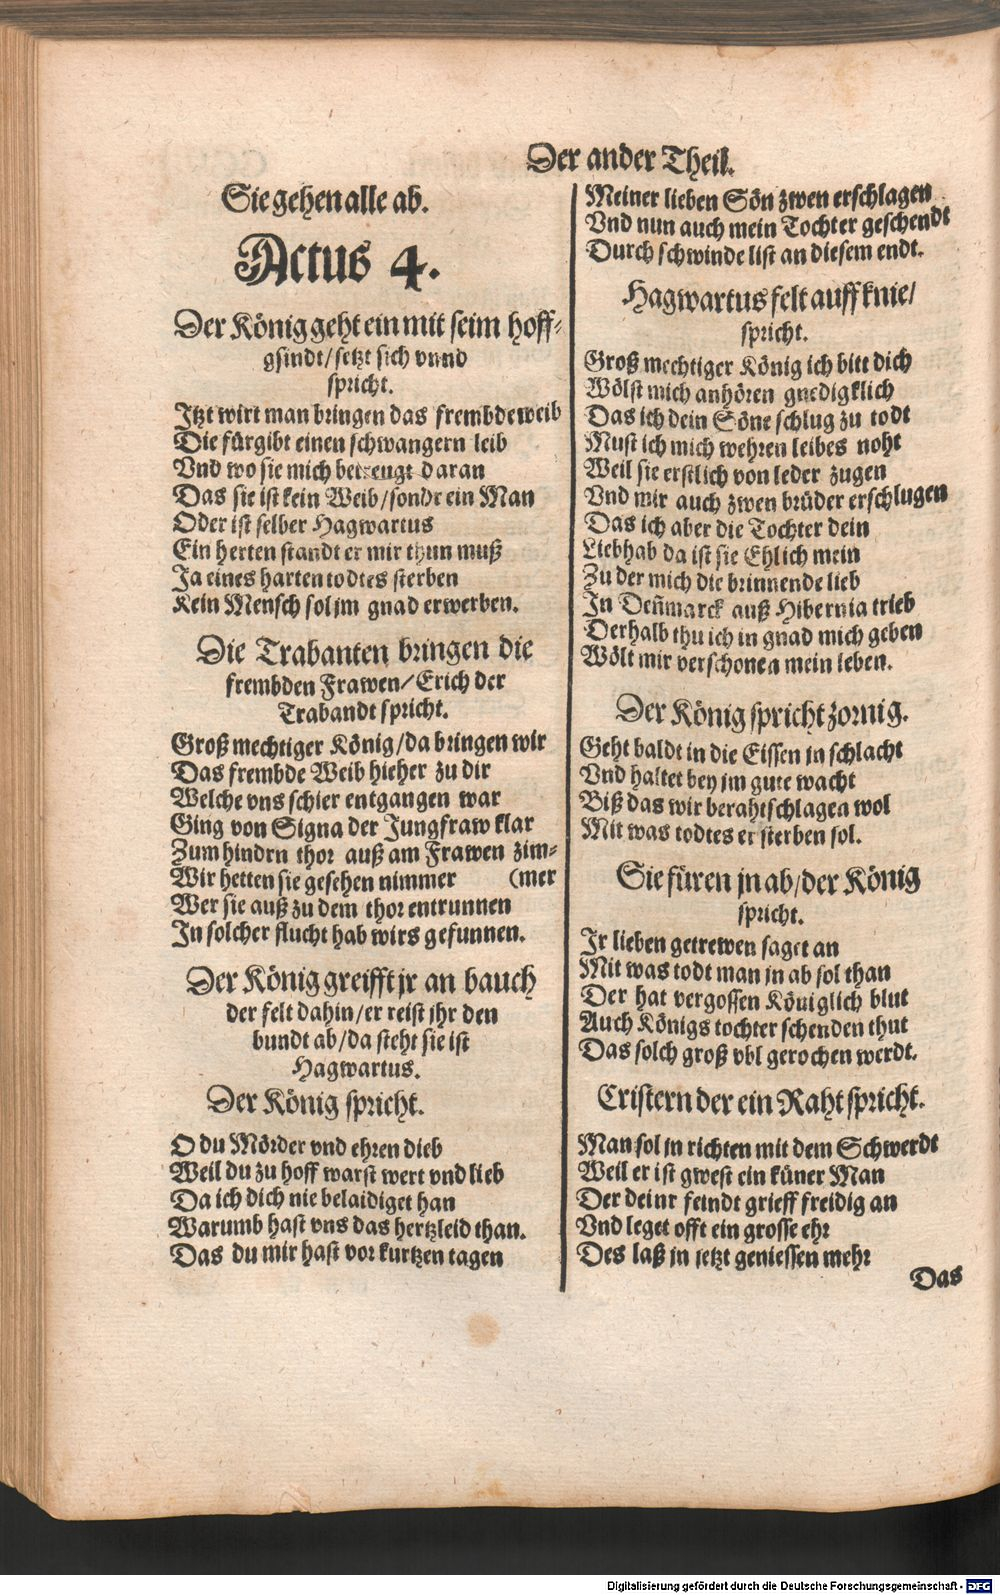 Der ander Theil.
Sie gehen alle ab.
Actus 4.
Der König geht ein mit seim hoff-
gsindt/ setzt sich vnnd
spricht.
Jtzt wirt man bringen das frembde weib
Die fürgibt einen schwangern leib
Vnd wo sie mich betreugt daran
Das sie ist kein Weib/ sondr ein Man
Oder ist selber Hagwartus
Ein herten standt er mir thun muß
Ja eines harten todtes sterben
Kein Mensch sol jm gnad erwerben.
Die Trabanten bringen die
frembden Frawen/ Erich der
Trabandt spricht.
Groß mechtiger König/ da bringen wir
Das frembde Weib hieher zu dir
Welche vns schier entgangen war
Ging von Signa der Jungfraw klar
Zum hindrn thor auß am Frawen zim-
Wir hetten sie gesehen nimmer (mer
Wer sie auß zu dem thor entrunnen
Jn solcher flucht hab wirs gefunnen.
Der König greifft jr an bauch
der felt dahin/ er reist jhr den
bundt ab/ da steht sie ist
Hagwartus.
Der König spricht.
O du Mörder vnd ehren dieb
Weil du zu hoff warst wert vnd lieb
Da ich dich nie belaidiget han
Warumb hast vns das hertzleid than.
Das du mir hast vor kurtzen tagen
Meiner lieben Sön zwen erschlagen
Vnd nun auch mein Tochter geschendt
Durch schwinde list an diesem endt.
Hagwartus felt auff knie/
spricht.
Groß mechtiger König ich bitt dich
Wölst mich anhören gnedigklich
Das ich dein Söne schlug zu todt
Must ich mich wehren leibes noht
Weil sie erstlich von leder zugen
Vnd mir auch zwen brüder erschlugen
Das ich aber die Tochter dein
Liebhab da ist sie Ehlich mein
Zu der mich die brinnende lieb
Jn Deñmarck auß Hibernia trieb
Derhalb thu ich in gnad mich geben
Wölt mir verschonen mein leben.
Der König spricht zornig.
Geht baldt in die Eissen jn schlacht
Vnd haltet bey jm gute wacht
Biß das wir berahtschlagen wol
Mit was todtes er sterben sol.
Sie füren jn ab/ der König
spricht.
Jr lieben getrewen saget an
Mit was todt man jn ab sol than
Der hat vergossen Königlich blut
Auch Königs tochter schenden thut
Das solch groß vbl gerochen werdt.
Cristern der ein Raht spricht.
Man sol jn richten mit dem Schwerdt
Weil er ist gwest ein küner Man
Der deinr feindt grieff freidig an
Vnd leget offt ein grosse ehr
Des laß jn jetzt geniessen mehr
Das
Digitalisierung gefördert durch die Deutsche Forschungsgemeinschaft - DFG